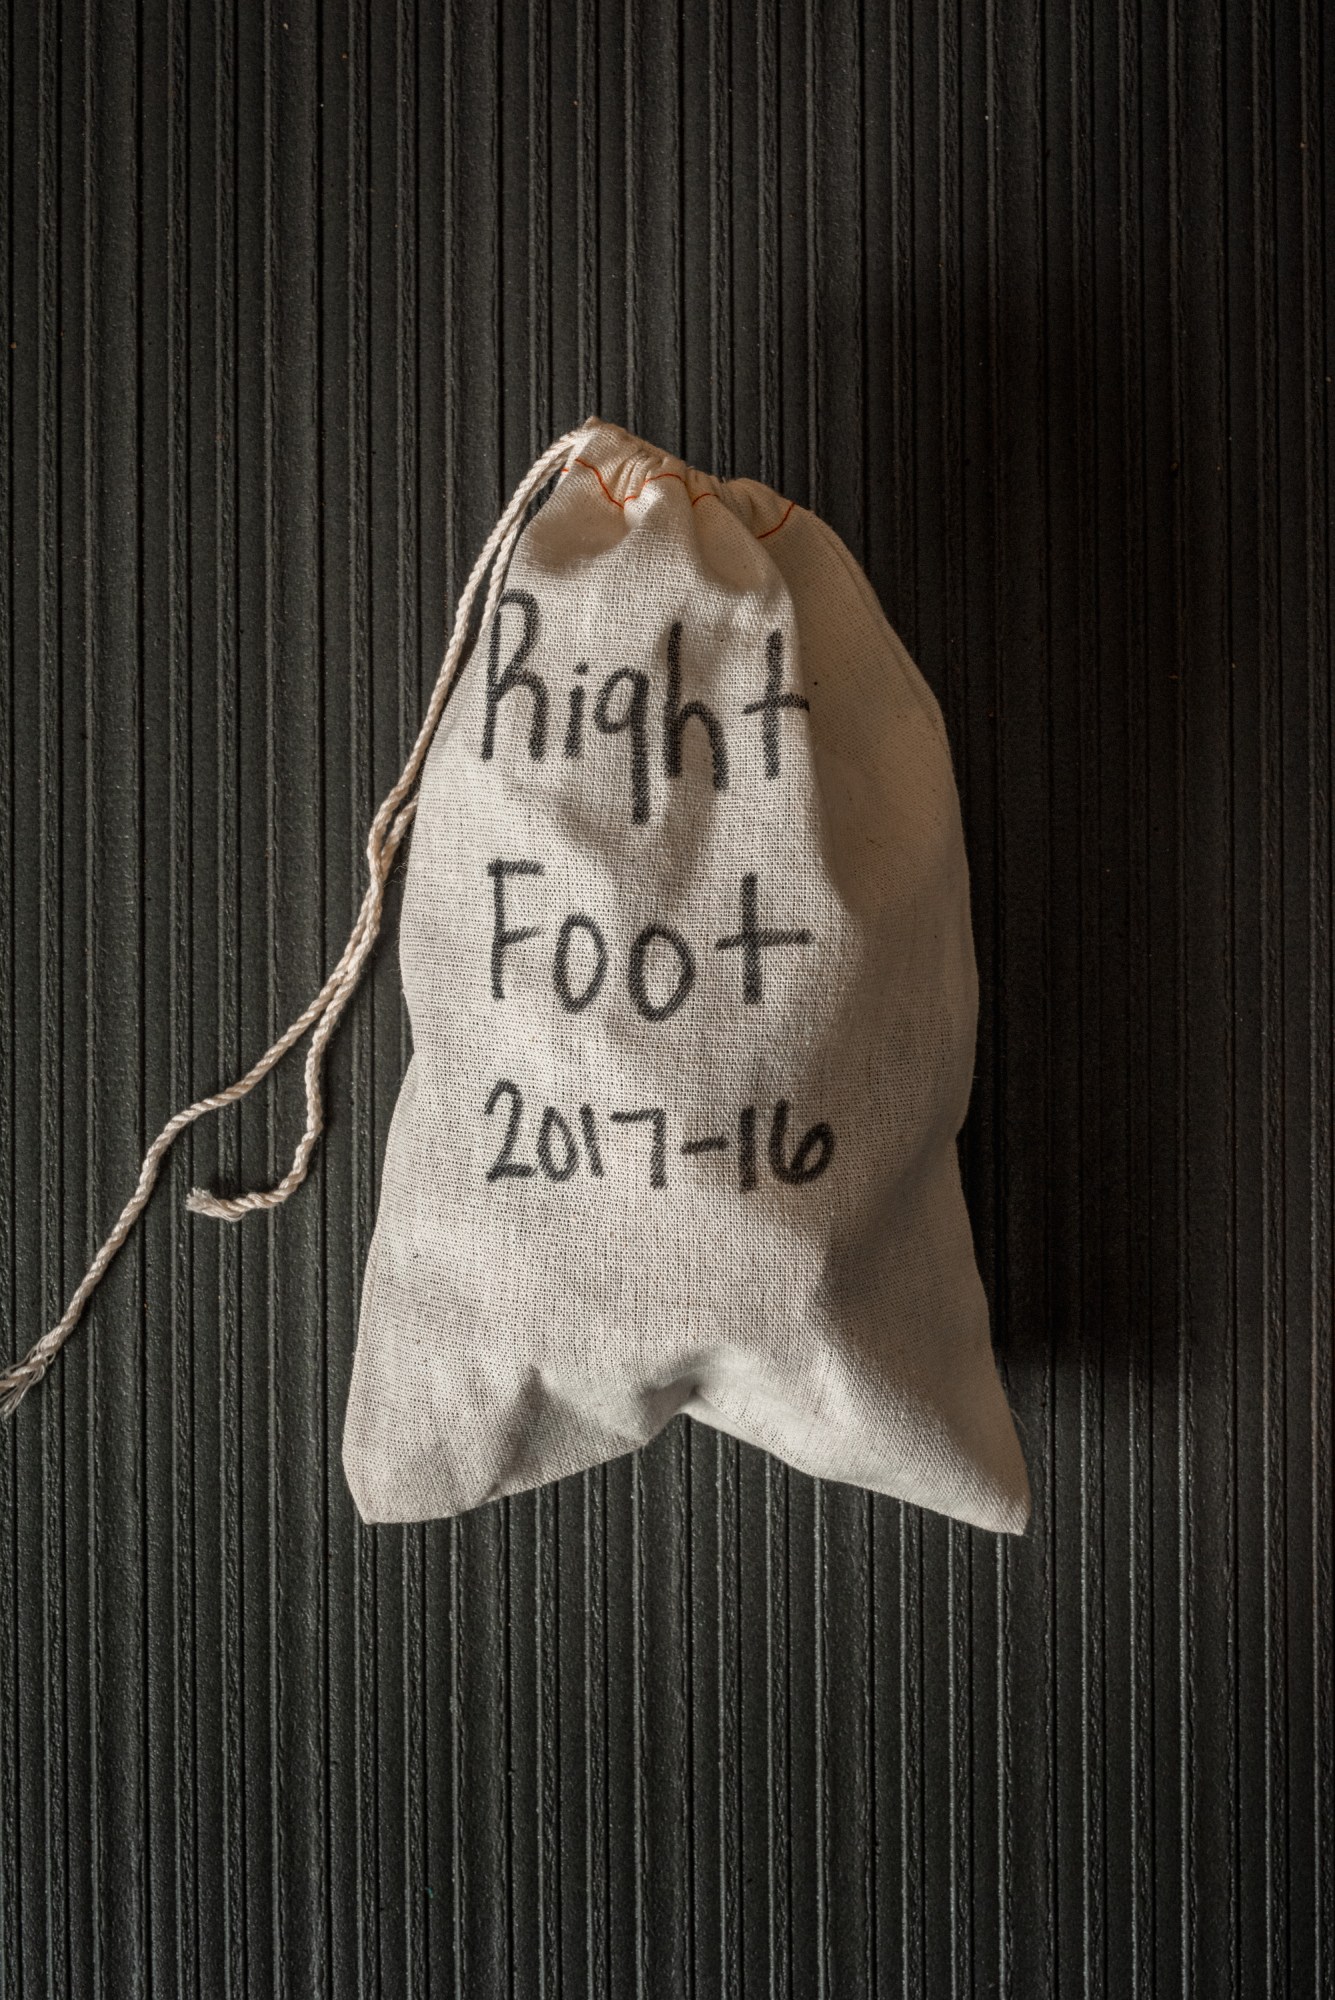 Right
Foot
2017-16